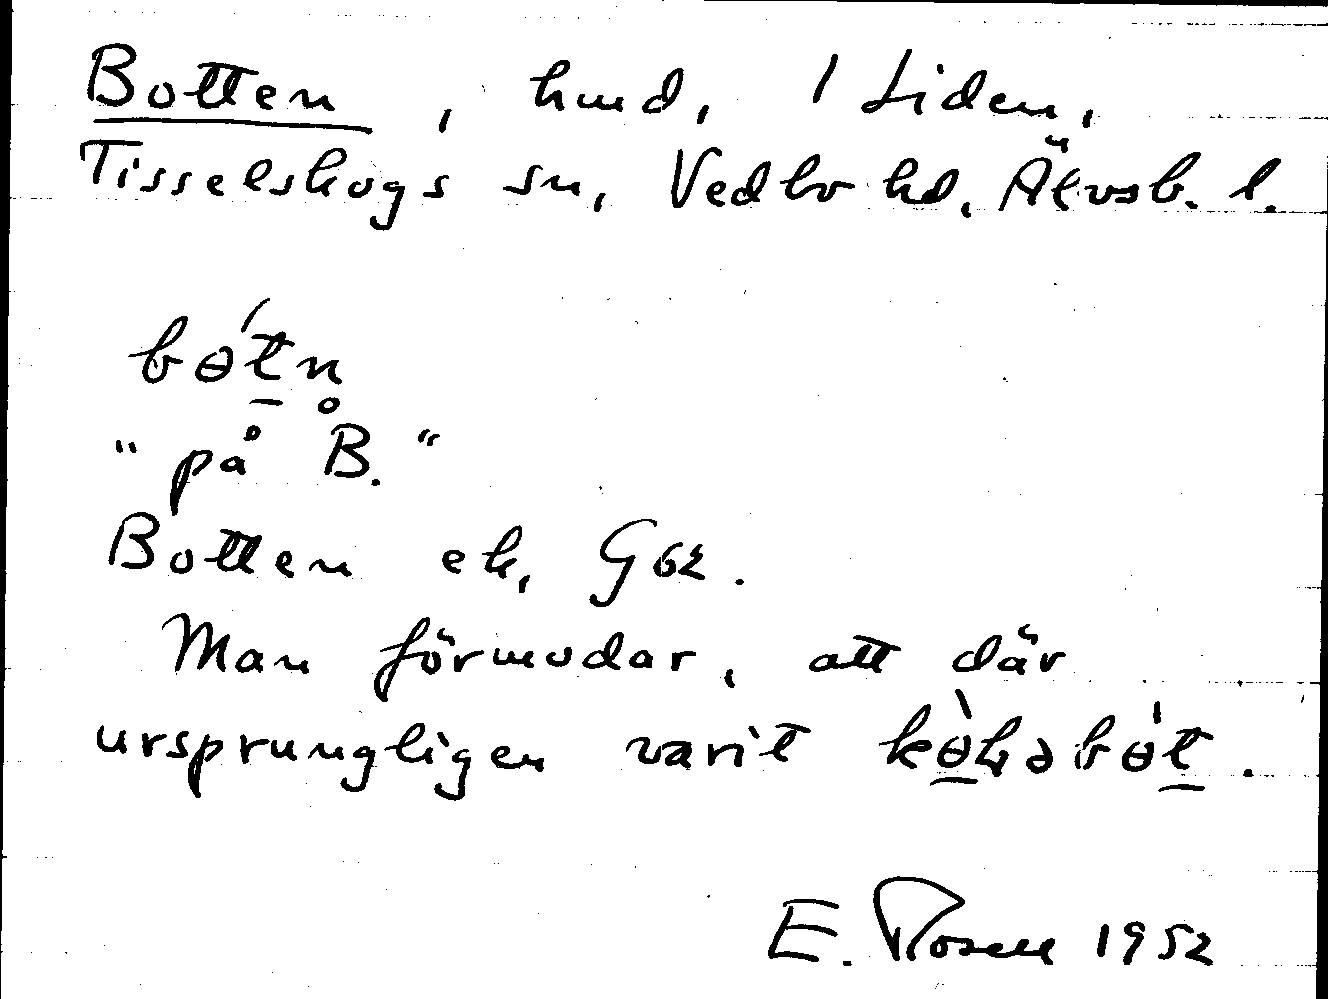 Botten, hmd, 1 Liden,
Tisselskogs sn, Vedbo hd, Älvsb. l.
bɵ́t̠n̥
"på B."
Botten ek, G62.
Man förmodar, att där
ursprungligen varit kɵ̠̀ḷəbɵ́t̠.
E. Rosell 1952